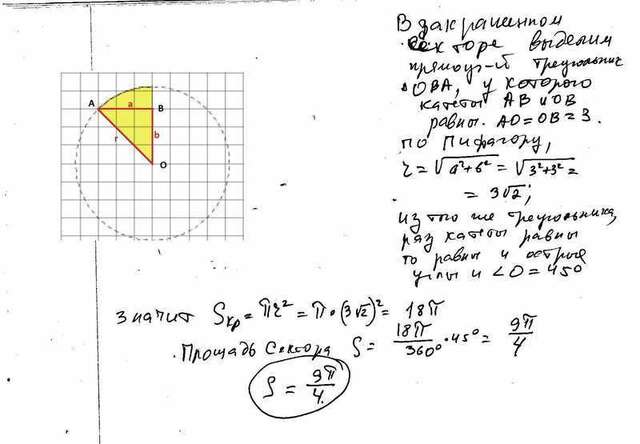 В закрашенном
секторе выделим
прямоуг-й треугольник
ОВА, у которого
катеты АВ и ОВ
равны. АО=ОВ=3.
По Пифагору,
r=√a²+b² = √3²+3² =
= 3√2;
из того же треугольника,
раз катеты равны
то равны и острые
углы и ∠О=45°
A
a
B
r
b
O
Значит Sкр= πr² = π•(3√2)² = 18π
Площадь сектора S= 18π/360° •45° = 9π/4
S = 9π/4